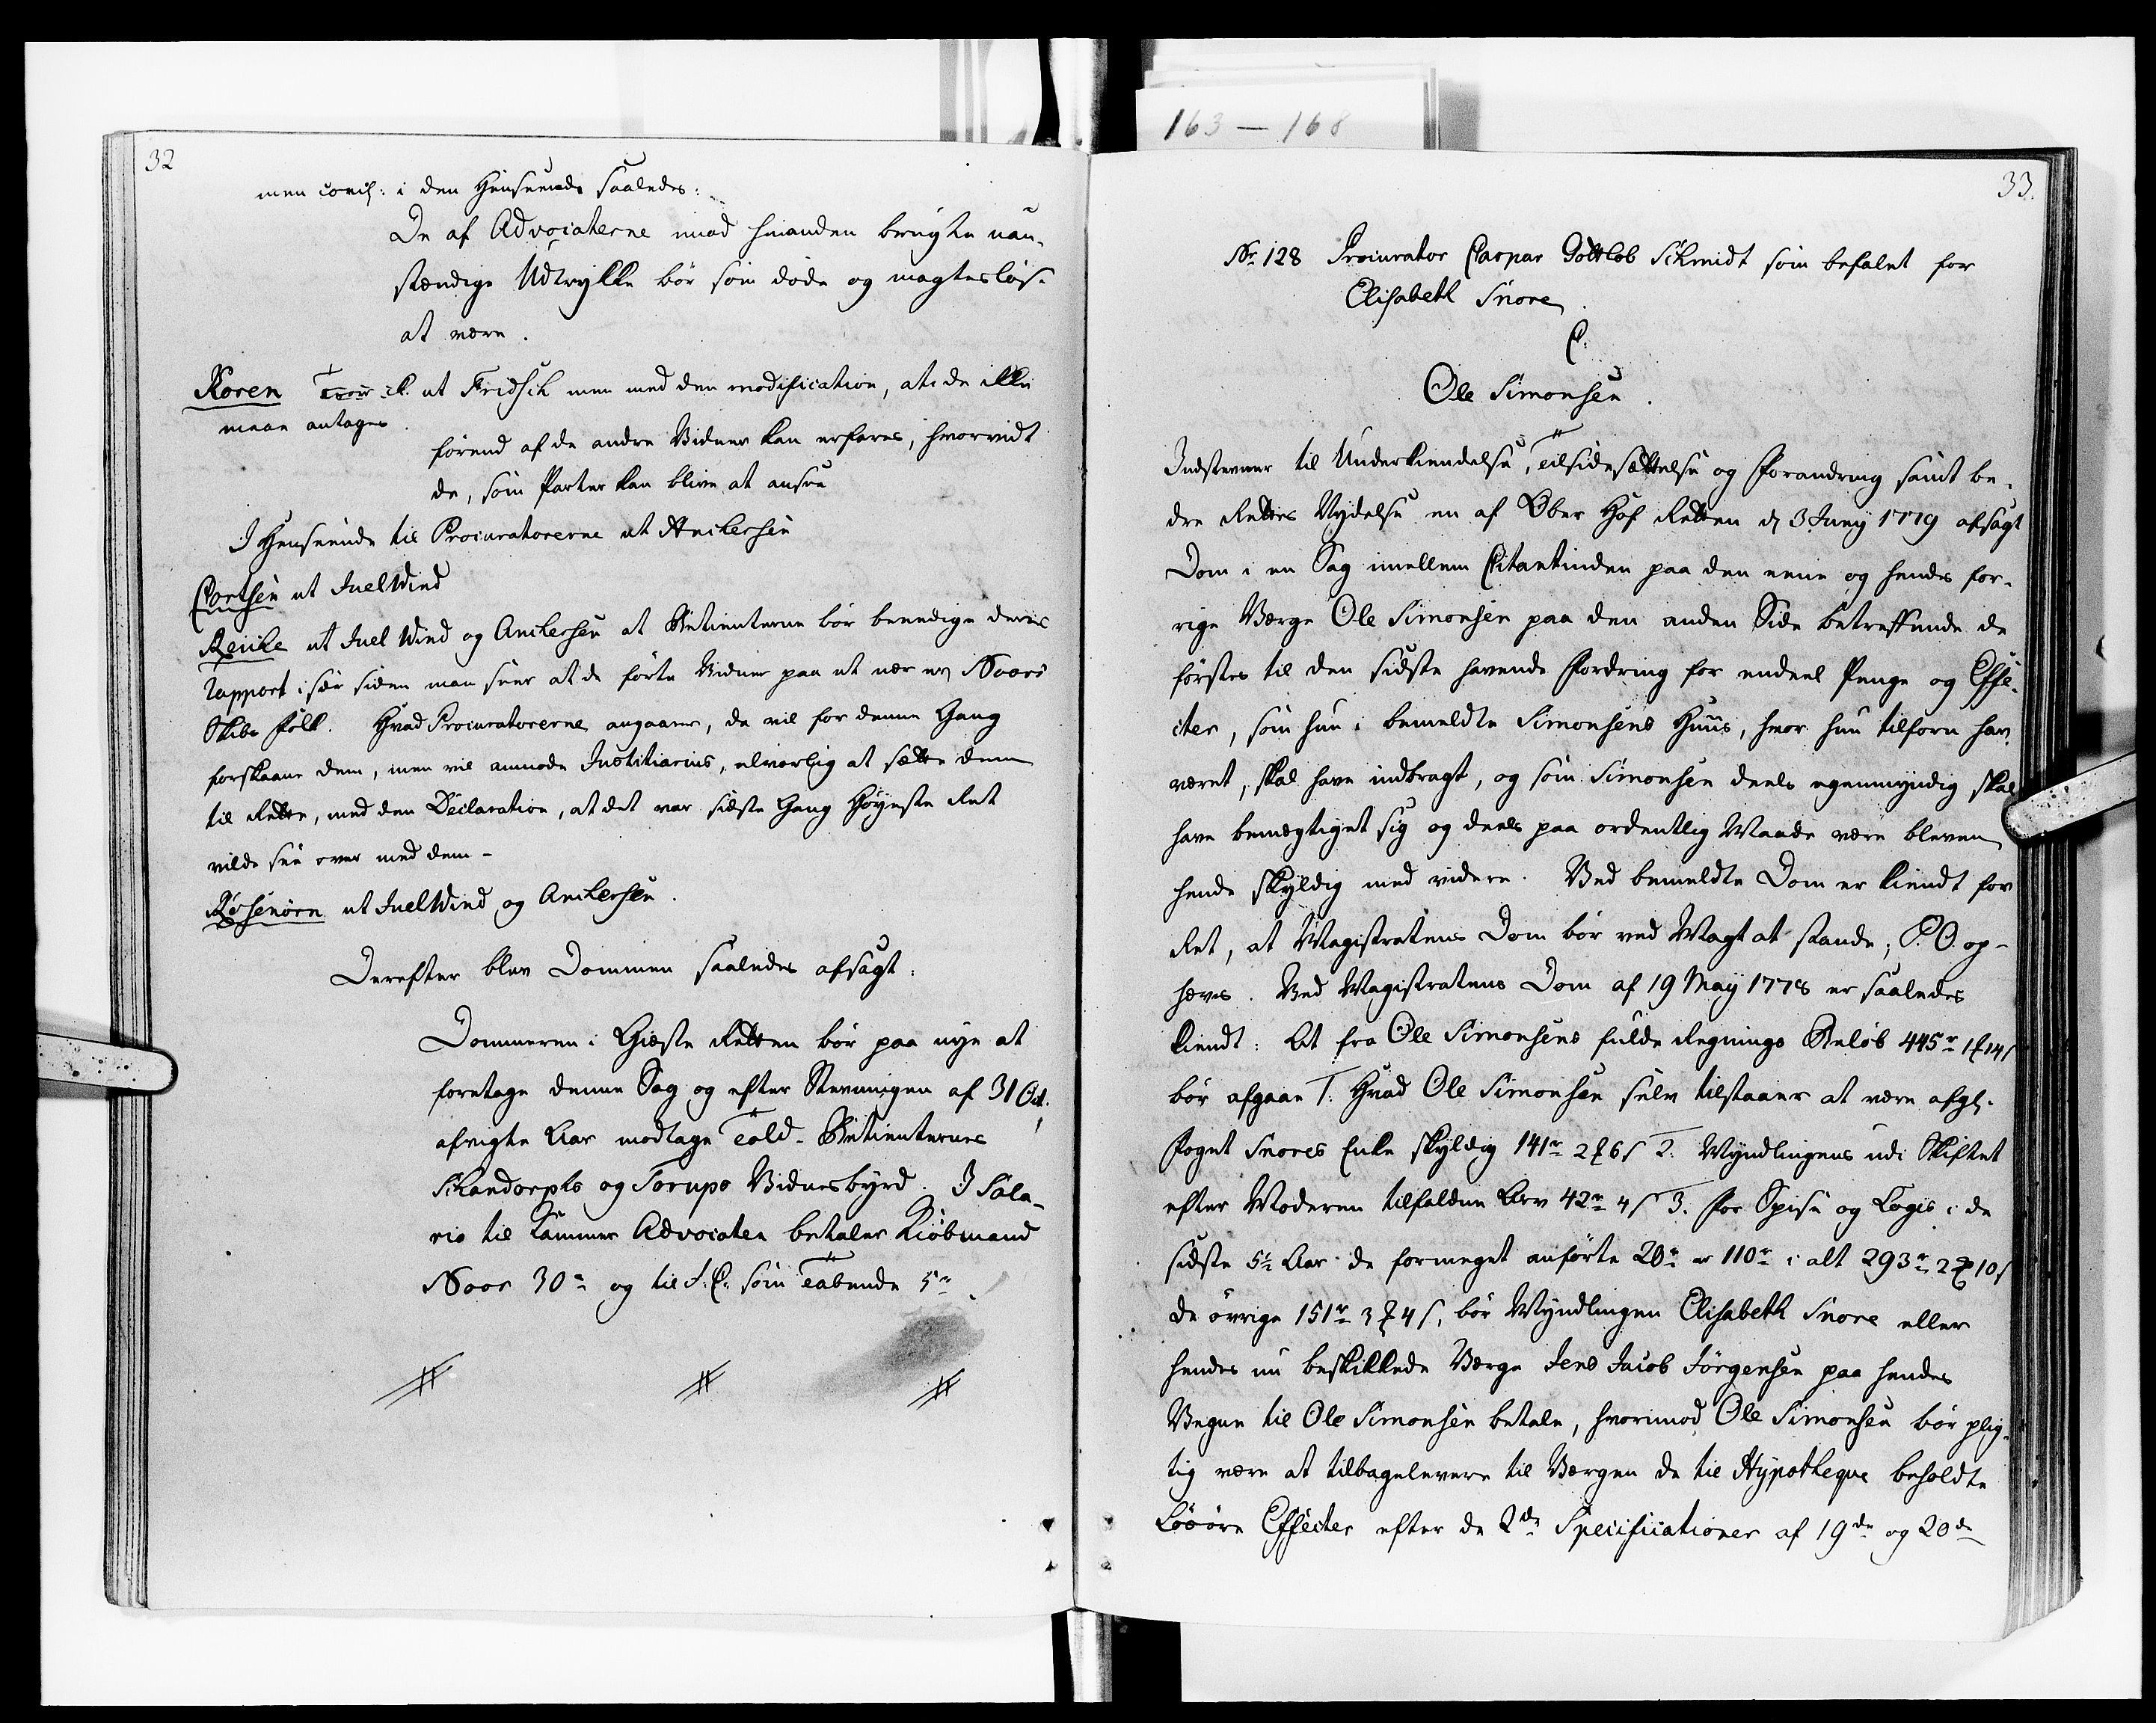 163 - 168
32
men concl: i den Henseende saaledes:
De af Advocaterne imod hinanden brugte uan-
stændige Udtrykke bør som døde og magtesløse
at være.
Koren ut Fridsch men med den modification, at de ikke
maae antages
førend af de andre Vidner kan erfares, hvorvidt
de, som Parter kan blive at ansee
I Henseende til Procuratorerne ut Anchersen
Cortsen ut Juel Wind
Reiche ut Juel Wind og Anchersen at Citanterne bør beeedige deres
rapport især siden man seer at de førte Vidner paa et nær er Noors
Skibs Folk. Hvad Procuratorerne angaaer, da vil for denne Gang
forskaane dem, men vil anmode Justitiarius, alvorlig at sætte dem
til Rette, med den Declaration, at det var sidste Gang Høyeste Ret
vilde see over med dem -
Rosenørn ut Juel Wind og Anchersen.
Derefter blev Dommen saaledes afsagt:
Dommeren i Gieste Retten bør paa nye at
foretage denne Sag og efter Stevningen af 31 Oct.
afvigte Aar modtage Told-Betienternes
Schandorphs og Torups Vidnesbyrd. I Sala-
rio til Cammer Advocaten betaler Kiøbmand
Noor 30 r og til J: C: som Tabende 5 r
33.
Nr. 128 Procurator Caspar Gottlob Schmidt som befalet for
Elisabeth Snore
C:
Ole Simonsen.
Indstevner til Underkiendelse, Tilsidesættelse og Forandring samt be-
dre Rettes Nydelse en af Ober Hof Retten d 3 Juny 1779 afsagt
Dom i en Sag imellem Citantinden paa den eene og hendes for-
rige Værge Ole Simonsen paa den anden Side betreffende de
førstes til den sidste havende Fordring for endeel Penge og Effe-
cter, som hun i bemeldte Simonsens Huus, hvor hun tilforn har
været, skal have indbragt, og som Simonsen deels egenmyndig skal
have bemægtiget sig og deels paa ordentlig Maade være bleven
hende skyldig med videre. Ved bemeldte Dom er kiendt for
Ret, at Magistratens Dom bør ved Magt at stande; P. O. op-
hæves. Ved Magistratens Dom af 19 May 1778 er saaledes
kiendt: At fra Ole Simonsens fulde Regnings Beløb 445 r 1 ꝟ 14 s
bør afgaae 1: Hvad Ole Simonsen selv tilstaaer at være afg.
Foget Snores Enke skyldig 141 r 2 ꝟ 6 s 2: Myndlingens udi Skiftet
efter Moderen tilfaldne Arv 42 r 4 s 3. For Spise og Logis i de
sidste 5½ Aar de formeget anførte 20 r er 110 r i alt 293 r 2 ꝟ 10 s
de øvrige 151 r 3 ꝟ 4 s, bør Myndlingen Elisabeth Snore eller
hendes nu beskikkede Værge Jens Jacob Jørgensen paa hendes
Vegne til Ole Simonsen betale, hvorimod Ole Simonsen bør plig-
tig være at tilbagelevere til Værgen de til Hypotheque beholdte
Løsøre Effecter efter de 2de Specificationer af 19de og 20de